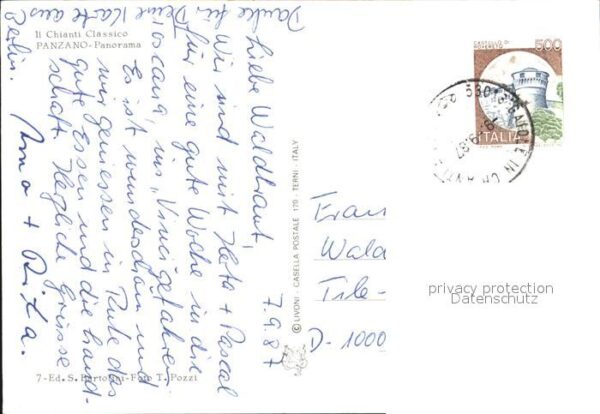 Il Chianti Classico
PANZANO - Panorama
Danke für Deine Karte aus
Berlin.
7.9.87
Liebe Waldtraut,
Wir sind mit Heta + Pascal
für eine gute Woche in die
Toscana, ins "Vinci gefahren.
Es ist wunderschön und
wir geniessen in Ruhe das
gute Essen und die Land-
schaft. Herzliche Grüsse
+ Rita.
7 - Ed. S. Bartolini - Foto T. Pozzi
© LIVONI - CASELLA POSTALE 170 - TERNI - ITALY
CASTELLO DI
ROVERETO
500
ITALIA
53013 GAIOLE IN CHIANTI
Frau
Wald
File-
D-1000
privacy protection
Datenschutz